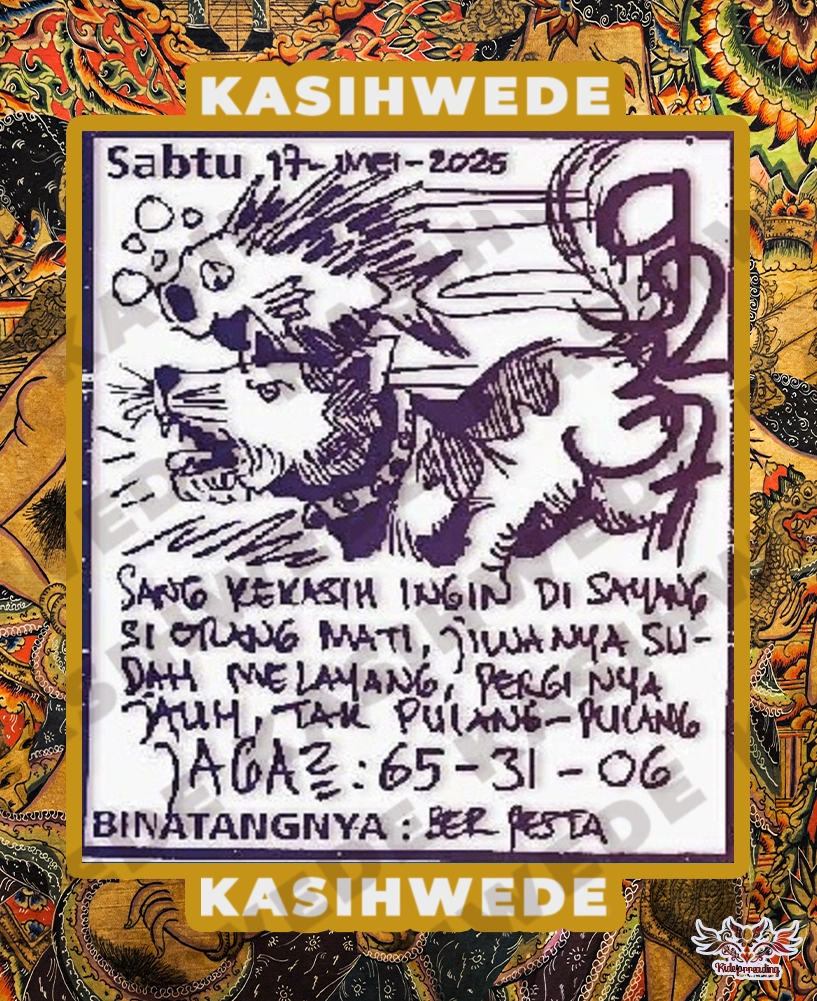 KASIHWEDE
Sabtu, 17-MEI-2025
SANG KEKASIH INGIN DI SAYANG
SI ORANG MATI, JIWANYA SU-
DAH MELAYANG, PERGI NYA
JAUH, TAK PULANG-PULANG
JAGA2 : 65-31-06
BINATANGNYA : BER PESTA
KASIHWEDE